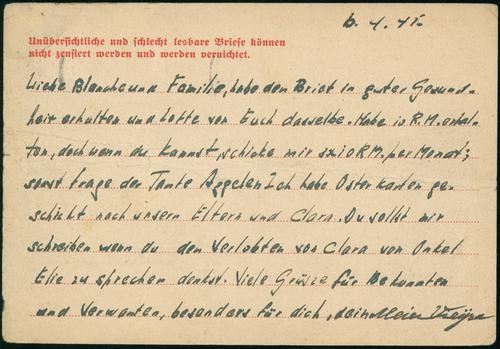 6.4.41.
Unübersichtliche und schlecht lesbare Briefe können
nicht zensiert werden und werden vernichtet.
Liebe Blanche und Familie, habe den Brief in guter Gesund-
heit erhalten und hoffe von Euch dasselbe. Habe 10 R.M. erhal-
ten, doch wenn du kannst, schicke mir 2x10 RM. per Monat;
sonst frage der Tante Ich habe Osterkarten ge-
schickt nach unsern Eltern und Clara. Du sollst mir
schreiben wenn du den Verlobten von Clara von Onkel
Elie zu sprechen denkst. Viele Grüsse für Bekannten
und Verwanten, besonders für dich, dein